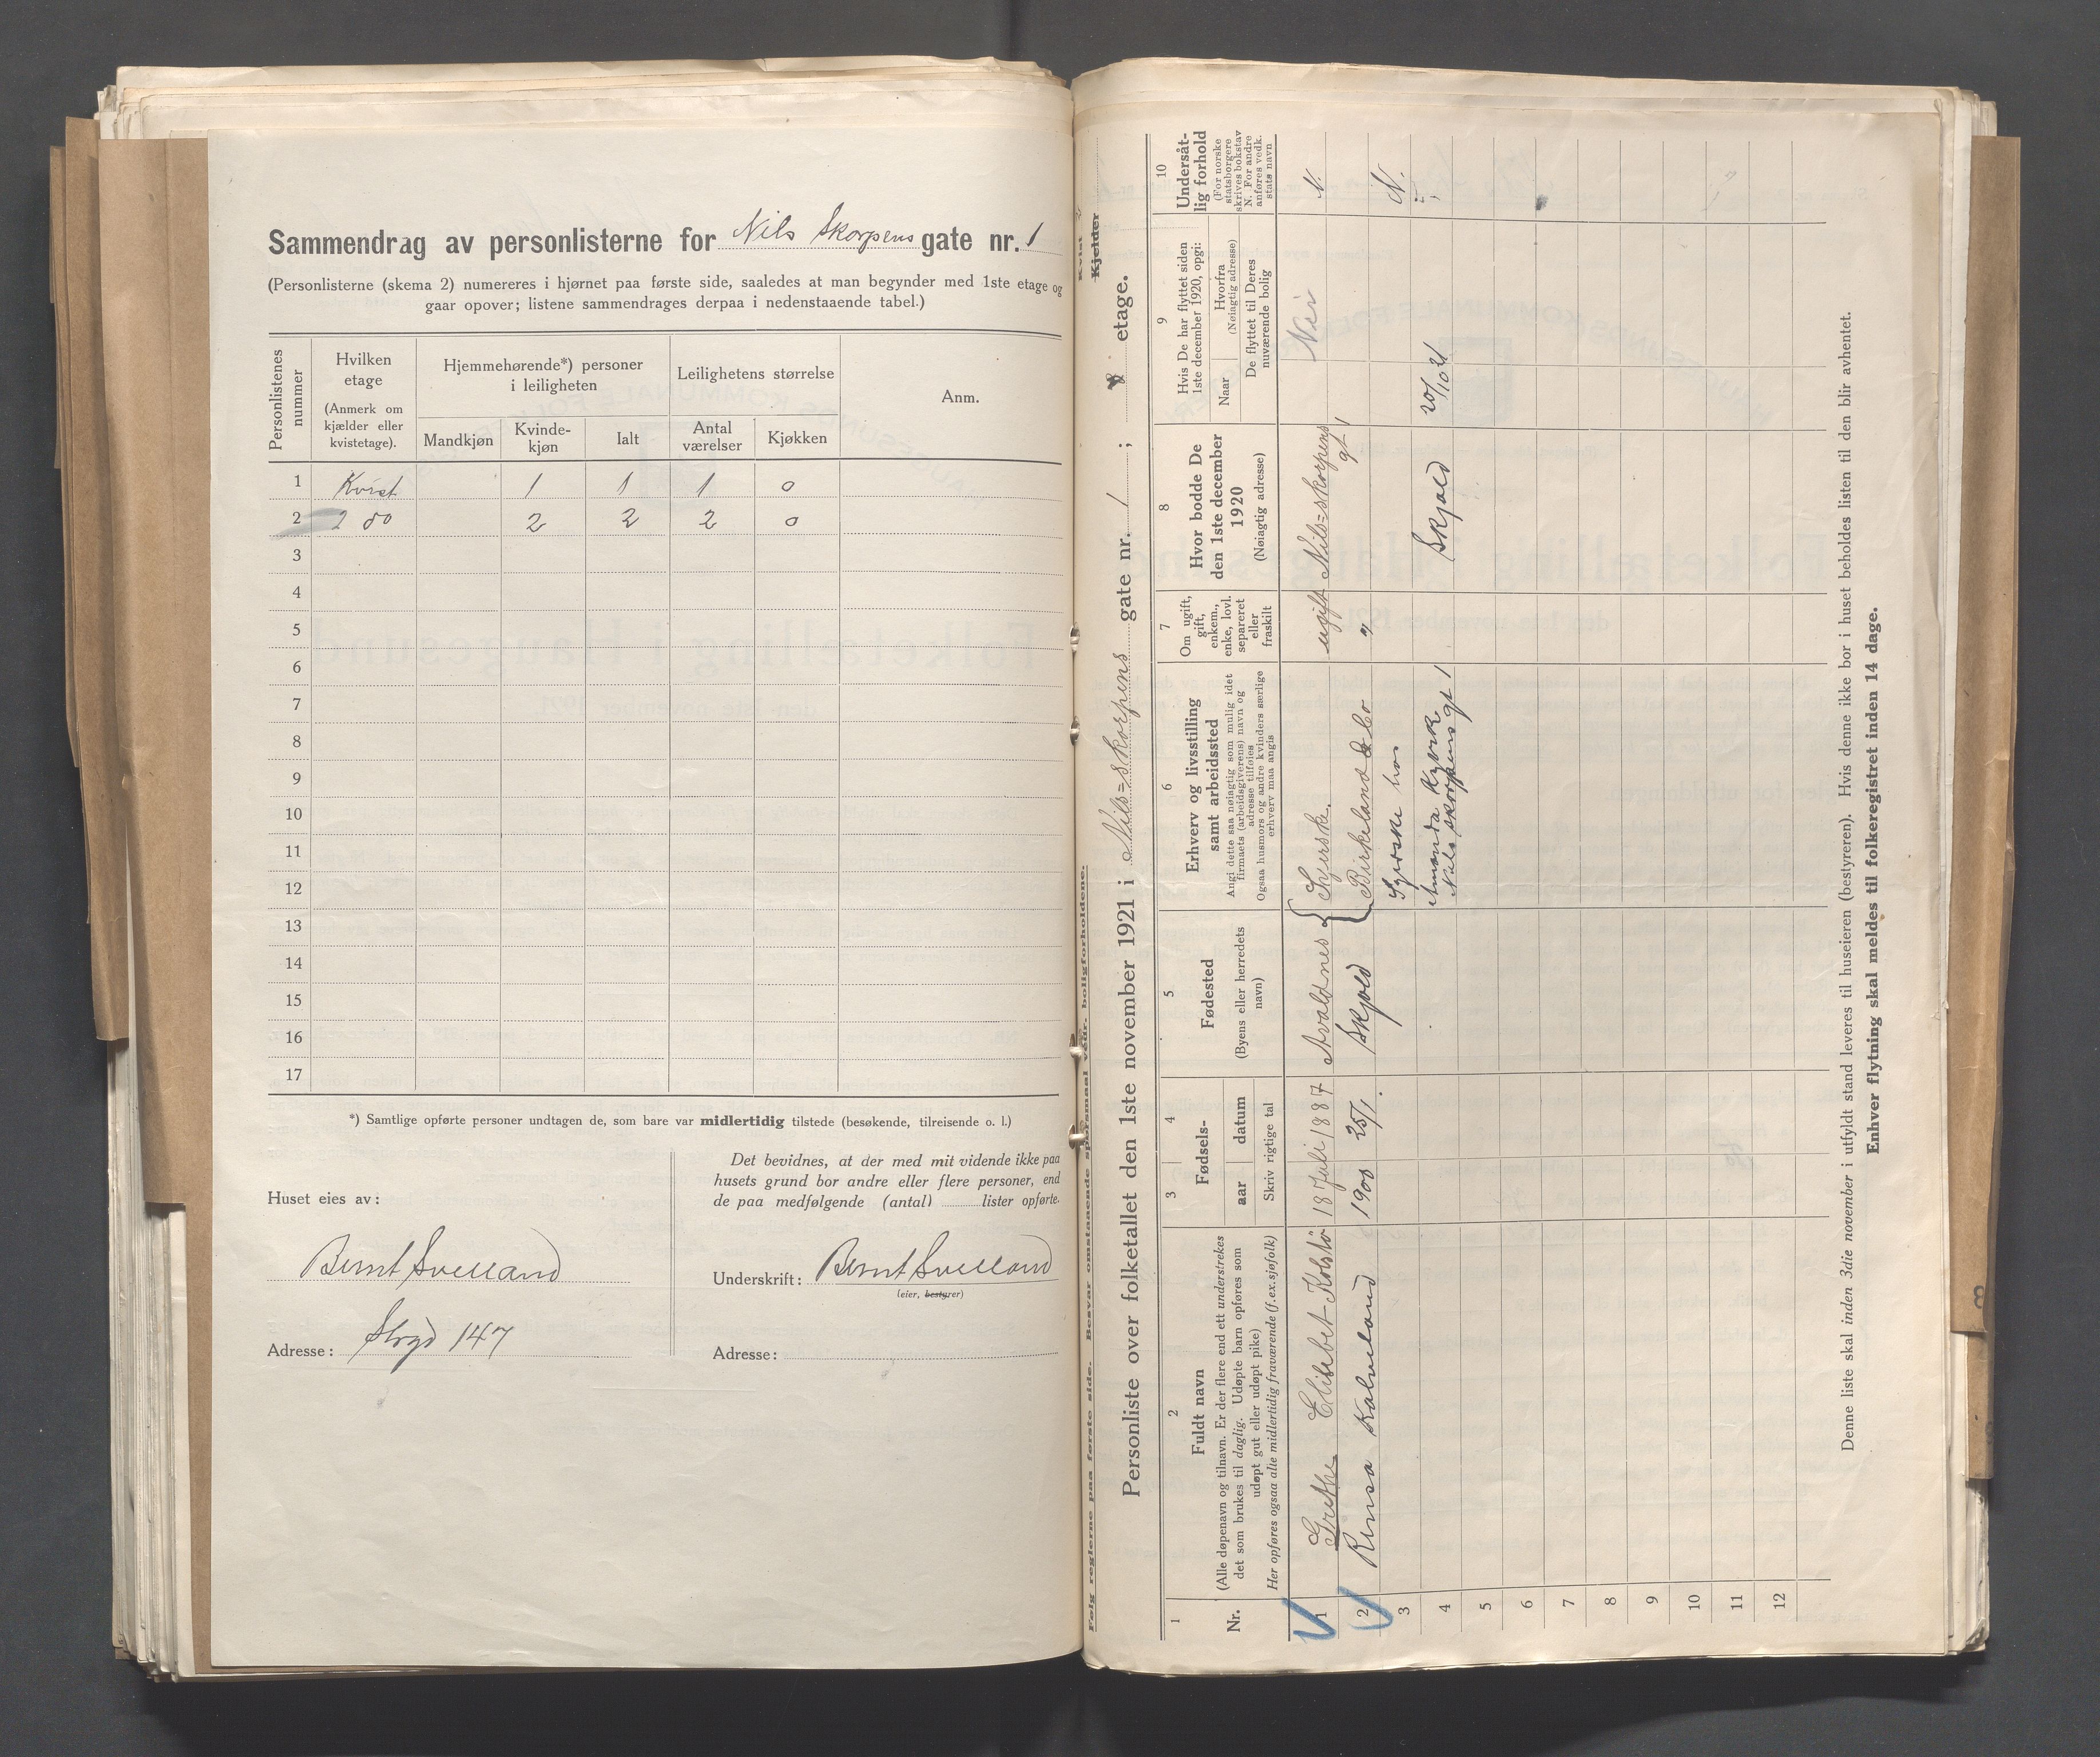 Sammendrag av personlisterne for Nils Skorpens gate nr. 1
(Personlisterne (skema 2) numereres i hjørnet paa første side, saaledes at man begynder med 1ste etage og
gaar opover; listene sammendrages derpaa i nedenstaaende tabel.)
Personlistenes nummer
Hvilken etage
(Anmerk om kjælder eller kvistetage).
Hjemmehørende*) personer i leiligheten
Mandkjøn
Kvinde-kjøn
Ialt
Leilighetens størrelse
Antal værelser
Kjøkken
Anm.
1 Kvist 1 1 1 0
2 2 do 2 2 2 0
3
4
5
6
7
8
9
10
11
12
13
14
15
16
17
*) Samtlige opførte personer undtagen de, som bare var midlertidig tilstede (besøkende, tilreisende o. l.)
Huset eies av:
Bernt Svelland
Adresse: Strgd 147
Det bevidnes, at der med mit vidende ikke paa
husets grund bor andre eller flere personer, end
de paa medfølgende (antal) lister opførte.
Underskrift: Bernt Svelland
(eier, bestyrer)
Adresse:
Følg reglerne paa første side. Besvar omstaaende spørsmaal vedr. boligforholdene.
Kvist
Kjelder
Personliste over folketallet den 1ste november 1921 i Nils=Skorpens gate nr. 1 ; etage.
1
Nr.
2
Fuldt navn
(Alle døpenavn og tilnavn. Er der flere end ett understrekes
det som brukes til daglig. Udøpte barn opføres som
udøpt gut eller udøpt pike)
Her opføres ogsaa alle midlertidig fraværende (f.ex. sjøfolk)
3 4
Fødsels-
aar datum
Skriv rigtige tal
5
Fødested
(Byens eller herredets navn)
6
Erhverv og livsstilling
samt arbeidssted
Angi dette saa nøiagtig som mulig idet
firmaets (arbeidsgiverens) navn og
adresse tilføies
Ogsaa husmors og andre kvinders særlige
erhverv maa angis
7
Om ugift,
gift,
enkem.,
enke, lovl.
separeret
eller
fraskilt
8
Hvor bodde De
den 1ste december
1920
(Nøiagtig adresse)
9
Hvis De har flyttet siden
1ste december 1920, opgi:
Naar
Hvorfra
(Nøiagtig adresse)
De flyttet til Deres
nuværende bolig
10
Undersåt-
lig forhold
(For norske
statsborgere
skrives bokstav
N. For andre
anføres vedk.
stats navn
1 Grethe Elisebet Kolstø 18 Juli 1887 Avaldnes { Syerske. ugift Nils=Skorpens gt 1 Nei N.
2 Rensa Kalveland 1900 25/1. Skjold { Birkeland & Co " N.
3 Syerske hos
4 Amanda Kjørk Skjold 20/10 21
Nils Skorpens gt 1
5
6
7
8
9
10
11
12
Denne liste skal inden 3die november i utfyldt stand leveres til huseieren (bestyreren). Hvis denne ikke bor i huset beholdes listen til den blir avhentet.
Enhver flytning skal meldes til folkeregistret inden 14 dage.